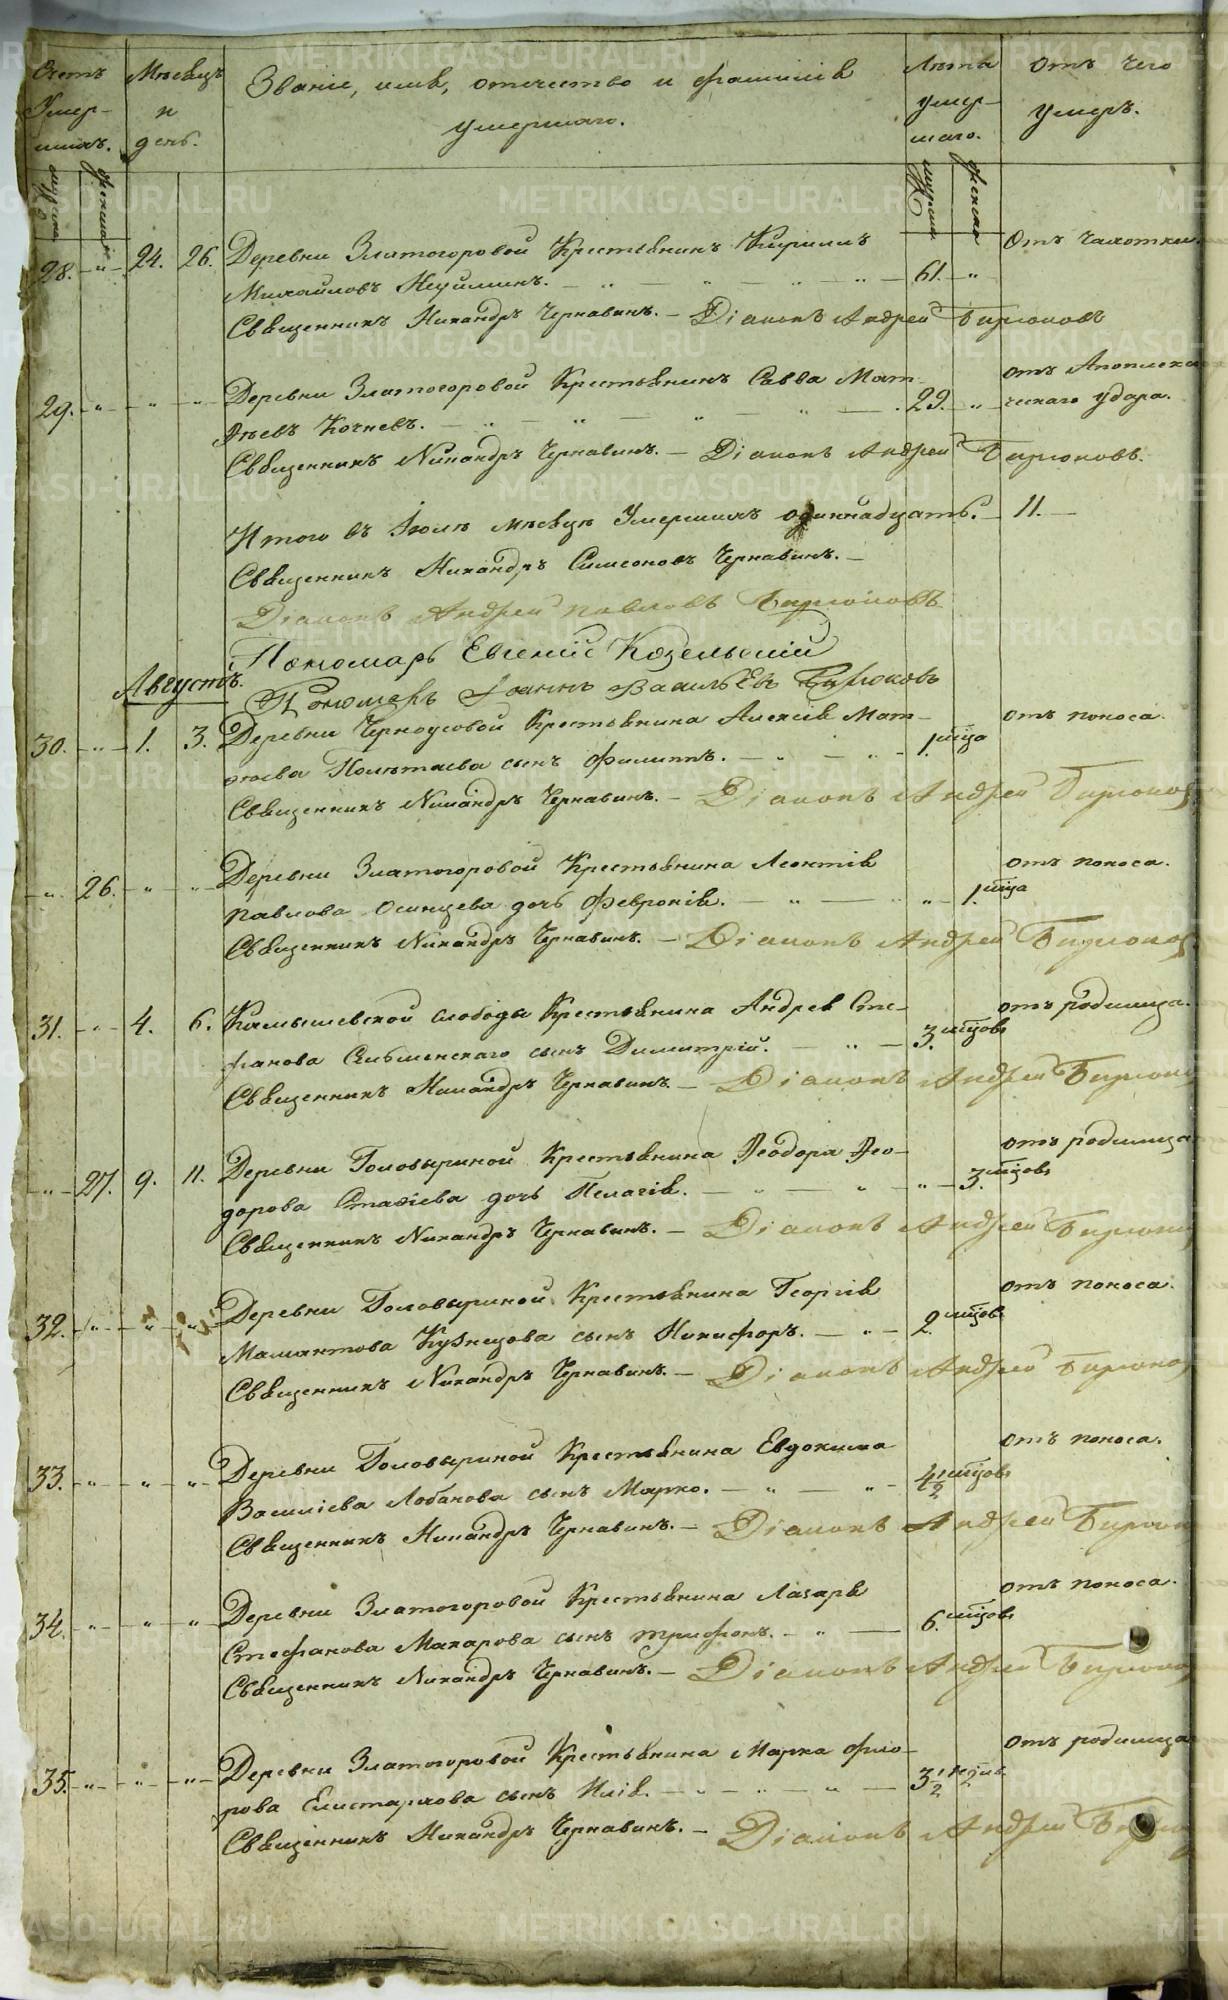 Счетъ Умершихъ.
Мѣсяцъ и день.
Званіе, имя, отчество и фамилія
умершаго.
Лѣта умершаго.
Отъ чего
умеръ.
мужска
женска
мужска
женска
28. „ 24. 26. Деревни Златогоровой Крестьянинъ Кириллъ Отъ чахотки.
Михайловъ Неуйминъ. 61. „
Священникъ Никандръ Чернавинъ. – Діаконъ Андрей Бирюковъ
29. „ „ „ Деревни Златогоровой Крестьянинъ Савва Мат- отъ Апоплекси-
ѳѣевъ Кочневъ. 29. „ ческаго удара.
Священникъ Никандръ Чернавинъ. – Діаконъ Андрей Бирюковъ.
Итого въ Іюлѣ мѣсяцѣ Умершихъ одиннадцать. – 11. –
Священникъ Никандръ Симеоновъ Чернавинъ. –
Діаконъ Андрей Павловъ Бирюковъ
Пономарь Евгеній Козельскій
Августъ.
Пономарь Іоаннъ Васильевъ Бирюковъ
30. „ 1. 3. Деревни Черноусовой Крестьянина Алексія Мат- отъ поноса.
ѳѣева Полѣтаева сынъ Филиппъ. 1. мѣца
Священникъ Никандръ Чернавинъ. – Діаконъ Андрей Бирюков
„ 26. „ „ Деревни Златогоровой Крестьянина Леонтія отъ поноса.
Павлова Осинцева дочь Февронія. „ 1. мѣца
Священникъ Никандръ Чернавинъ. – Діаконъ Андрей Бирюков
31. „ 4. 6. Камышевской слободы Крестьянина Андрея Сте- отъ родимца.
фанова сынъ Димитрій. 3. мѣцовъ
Священникъ Никандръ Чернавинъ – Діаконъ Андрей Бирюков
„ 27. 9. 11. Деревни Головыриной Крестьянина Ѳеодора Ѳео- отъ родимца
дорова дочь Пелагія. „ 3. мѣцовъ
Священникъ Никандръ Чернавинъ. – Діаконъ Андрей Бирюков
32. „ „ „ Деревни Головыриной Крестьянина Георгія отъ поноса.
Мамонтова Кузнецова сынъ Никифоръ. 2. мѣцовъ
Священникъ Никандръ Чернавинъ. – Діаконъ Андрей Бирюков
33. „ „ „ Деревни Головыриной Крестьянина Евдокима отъ поноса.
Василіева Лобанова сынъ Марко. 4½ мѣцовъ
Священникъ Никандръ Чернавинъ. – Діаконъ Андрей Бирюков
34. „ „ „ Деревни Златогоровой Крестьянина Лазаря отъ поноса.
Стефанова Макарова сынъ Трифонъ. 6. мѣцовъ
Священникъ Никандръ Чернавинъ. – Діаконъ Андрей Бирюков
35. „ „ „ Деревни Златогоровой Крестьянина Марка Фло- отъ родимца
рова Елистархова сынъ Илія. 3½
Священникъ Никандръ Чернавинъ. – Діаконъ Андрей Бирюков
METRIKI.GASO-URAL.RU